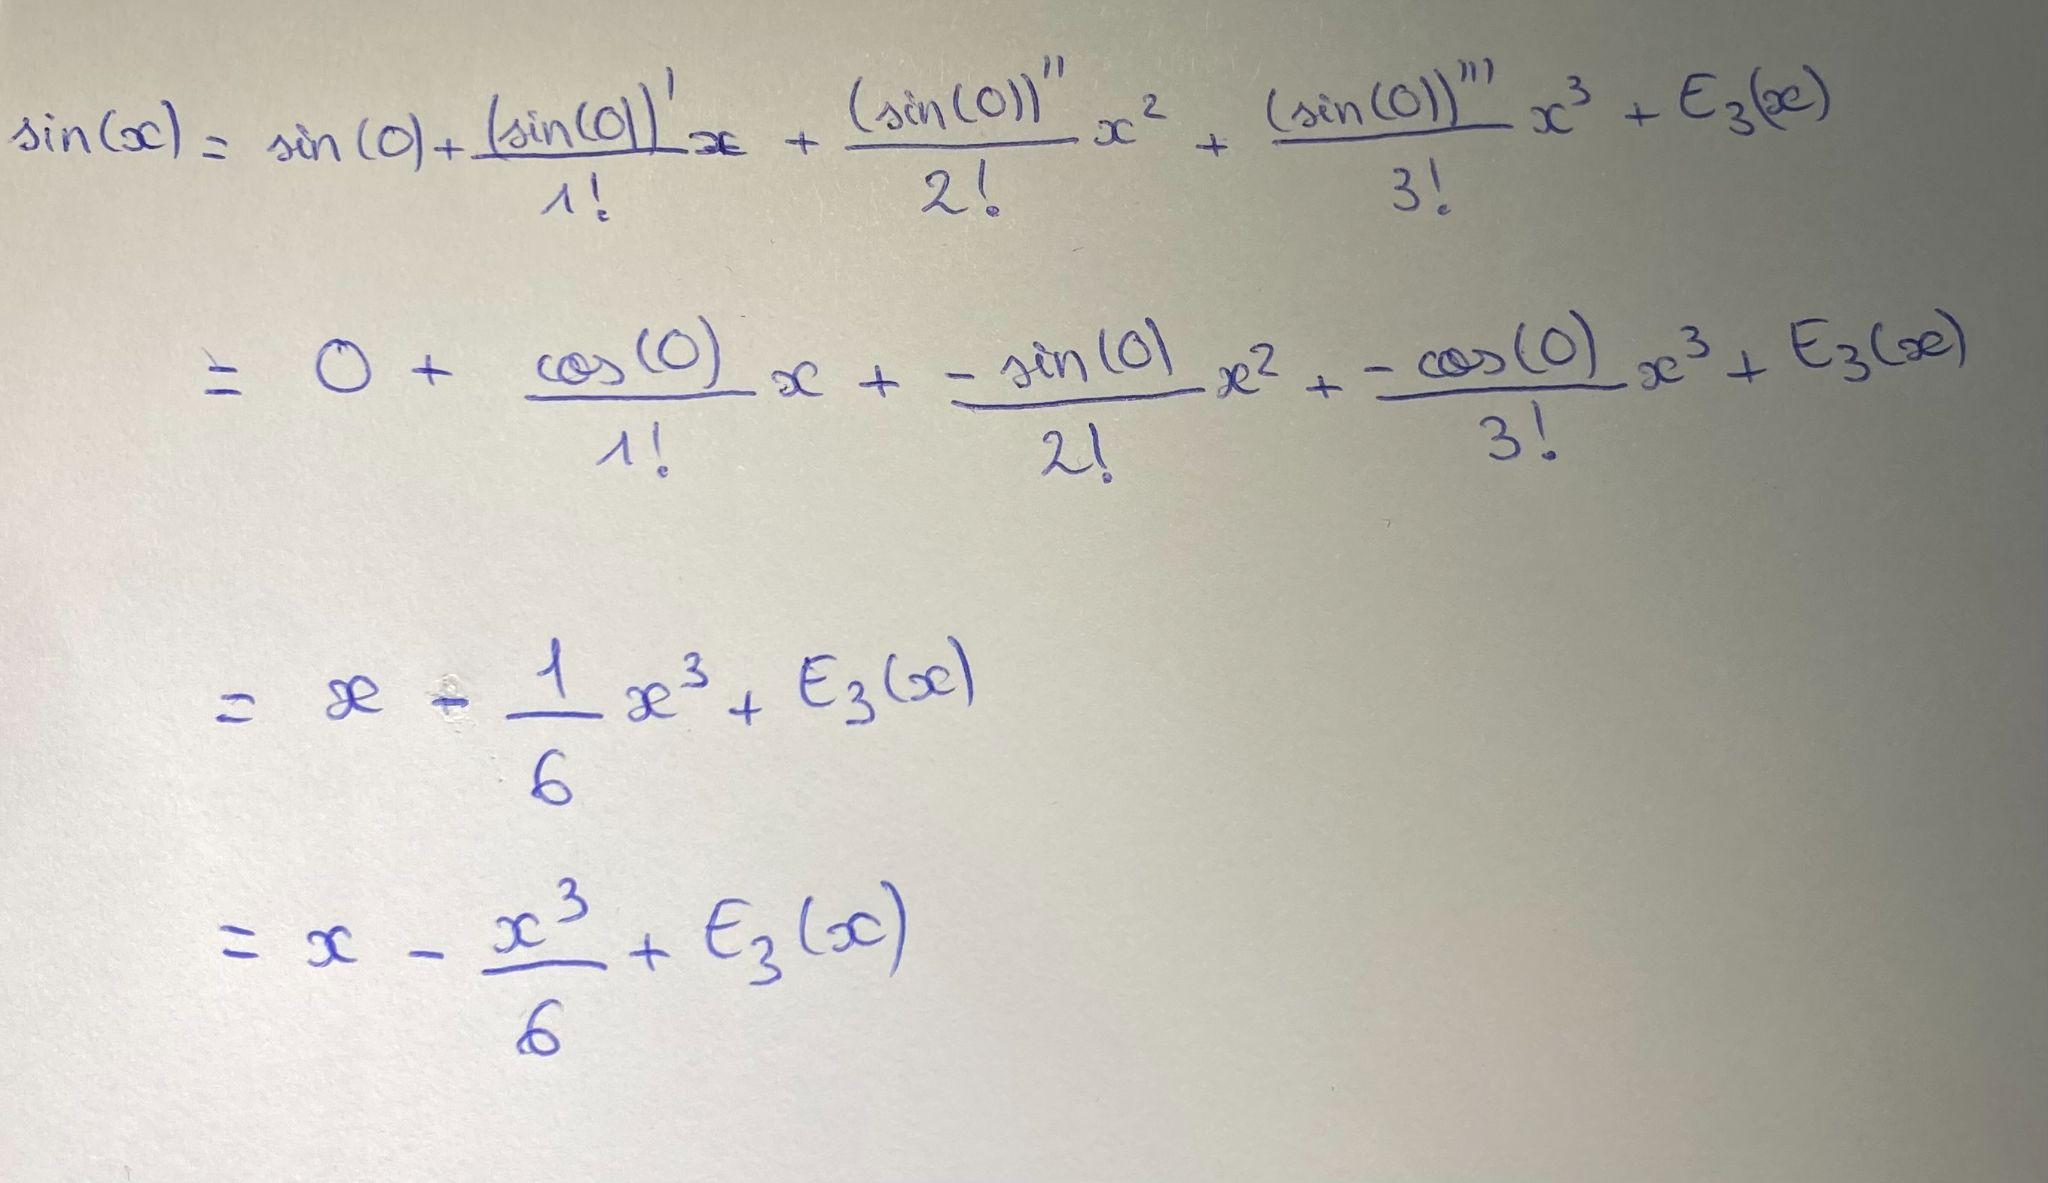 sin(x) = sin(0) + (sin(0))'/1! x + (sin(0))''/2! x² + (sin(0))'''/3! x³ + E₃(x)
= 0 + cos(0)/1! x + -sin(0)/2! x² + -cos(0)/3! x³ + E₃(x)
= x - 1/6 x³ + E₃(x)
= x - x³/6 + E₃(x)